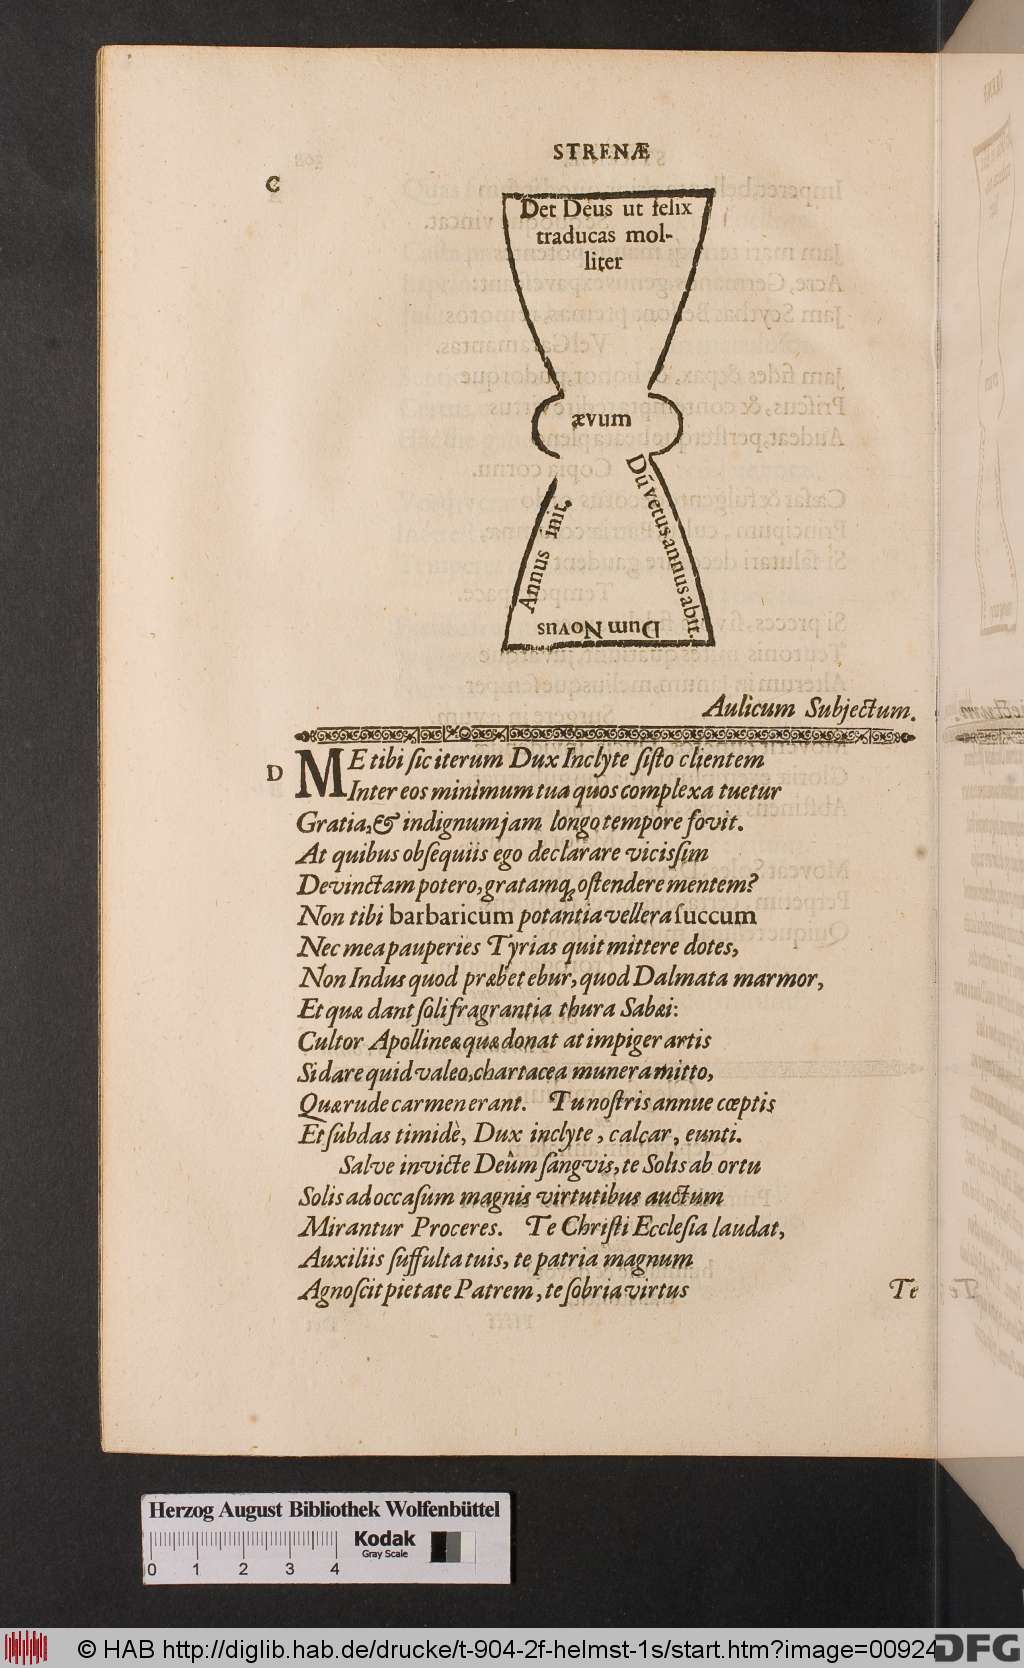 STRENÆ
C
Det Deus ut felix
traducas mol-
liter
ævum
Dū vetus annus abit.
Dum Novus
Annus init,
Aulicum Subjectum.
D
ME tibi sic iterum Dux Inclyte sisto clientem
Inter eos minimum tua quos complexa tuetur
Gratia, & indignum jam longo tempore fovit.
At quibus obsequiis ego declarare vicissim
Devinctam potero, gratamq; ostendere mentem?
Non tibi barbaricum potantia vellera succum
Nec mea pauperies Tyrias quit mittere dotes,
Non Indus quod præbet ebur, quod Dalmata marmor,
Et quæ dant soli fragrantia thura Sabæi:
Cultor Apollineæ quæ donat at impiger artis
Si dare quid valeo, chartacea munera mitto,
Quæ rude carmen erant. Tu nostris annue cœptis
Et subdas timidè, Dux inclyte, calcar, eunti.
Salve invicte Deûm sangvis, te Solis ab ortu
Solis ad occasum magnis virtutibus auctum
Mirantur Proceres. Te Christi Ecclesia laudat,
Auxiliis suffulta tuis, te patria magnum
Agnoscit pietate Patrem, te sobria virtus
Te
Herzog August Bibliothek Wolfenbüttel
Kodak
Gray Scale
0 1 2 3 4
© HAB http://diglib.hab.de/drucke/t-904-2f-helmst-1s/start.htm?image=00924
DFG